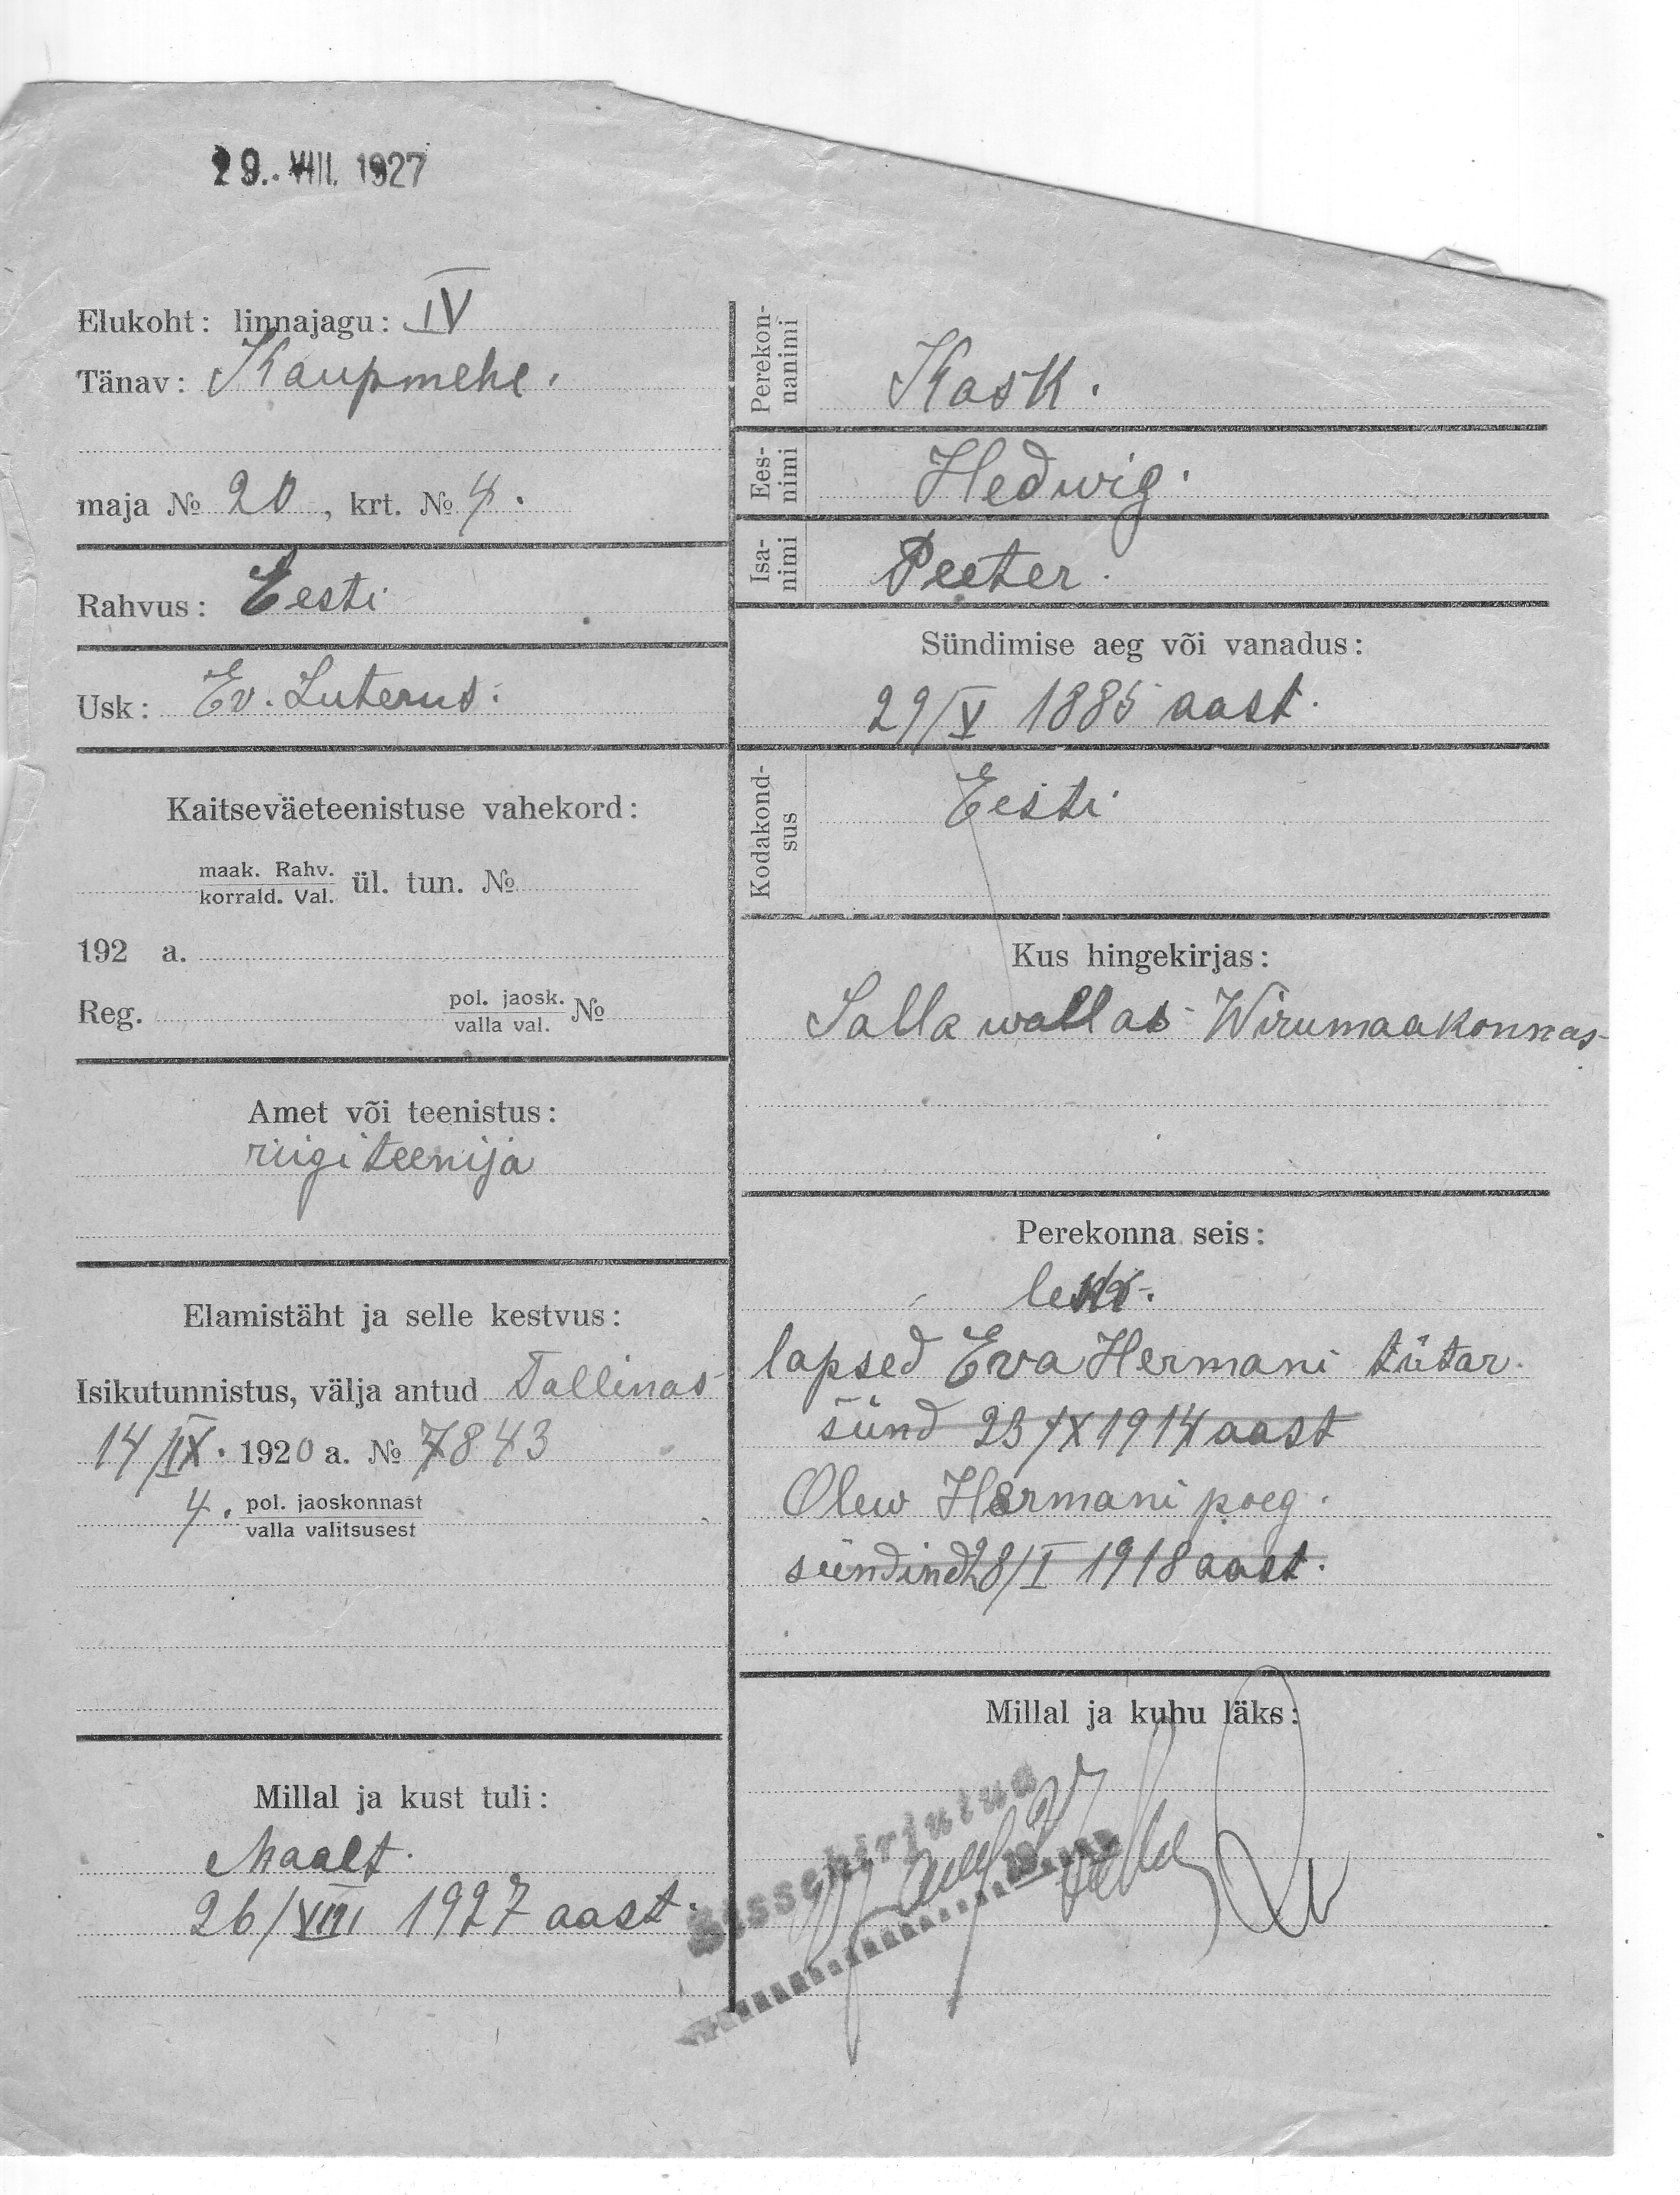 29. VIII. 1927
Elukoht: linnajagu: IV
Tänav: Kaupmehe.
maja № 20, krt. № 4.
Rahvus: Eesti
Usk: Ev. Luterus.
Kaitseväeteenistuse vahekord:
maak. Rahv.
korrald. Val. ül. tun. №
192 a.
Reg. pol. jaosk.
valla val. №
Amet või teenistus:
riigiteenija
Elamistäht ja selle kestvus:
Isikutunnistus, välja antud Tallinas
14/IX. 1920 a. № 7843
4. pol. jaoskonnast
valla valitsusest
Millal ja kust tuli:
Maalt.
26/VIII 1927 aast.
Perekon-
nanimi
Kask.
Ees-
nimi
Hedwig.
Isa-
nimi
Peeter.
Sündimise aeg või vanadus:
29/V 1885 aast.
Kodakond-
sus
Eesti
Kus hingekirjas:
Salla wallas Wirumaakonnas
Perekonna seis:
lesk.
lapsed Eva Hermani tütar.
sünd 23/X 1914 aast
Olew Hermani poeg.
sündind 28/I 1918 aast.
Millal ja kuhu läks:
Sissekirjutus